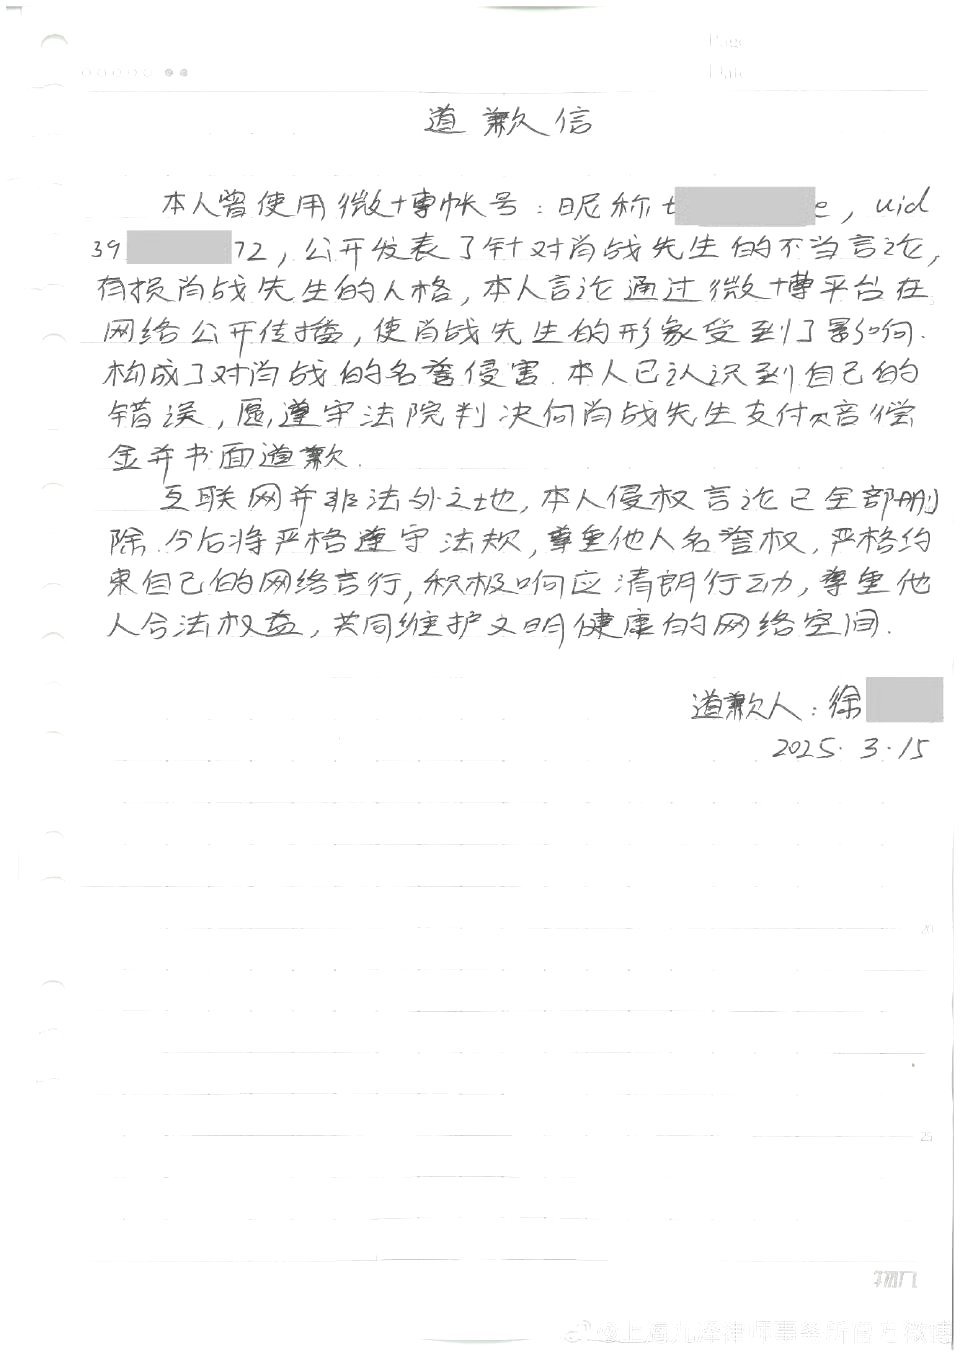 道歉信
本人曾使用微博帐号：昵称t e，uid
39 72，公开发表了针对肖战先生的不当言论，
有损肖战先生的人格，本人言论通过微博平台在
网络公开传播，使肖战先生的形象受到了影响.
构成了对肖战的名誉侵害.本人已认识到自己的
错误，愿遵守法院判决向肖战先生支付 偿
金并书面道歉.
互联网并非法外之地，本人侵权言论已全部删
除.今后将严格遵守法规，尊重他人名誉权，严格约
束自己的网络言行，积极响应清朗行动，尊重他
人合法权益，共同维护文明健康的网络空间.
道歉人：徐
2025.3.15
20
25
@上海九泽律师事务所官方微博